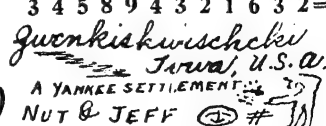 3 4 5 8 9 4 3 2 1 6 3 2=
Gurnkiskwischcki
Iowa, U.S.A.
A YANKEE SETTLEMENT
NUT & JEFF #